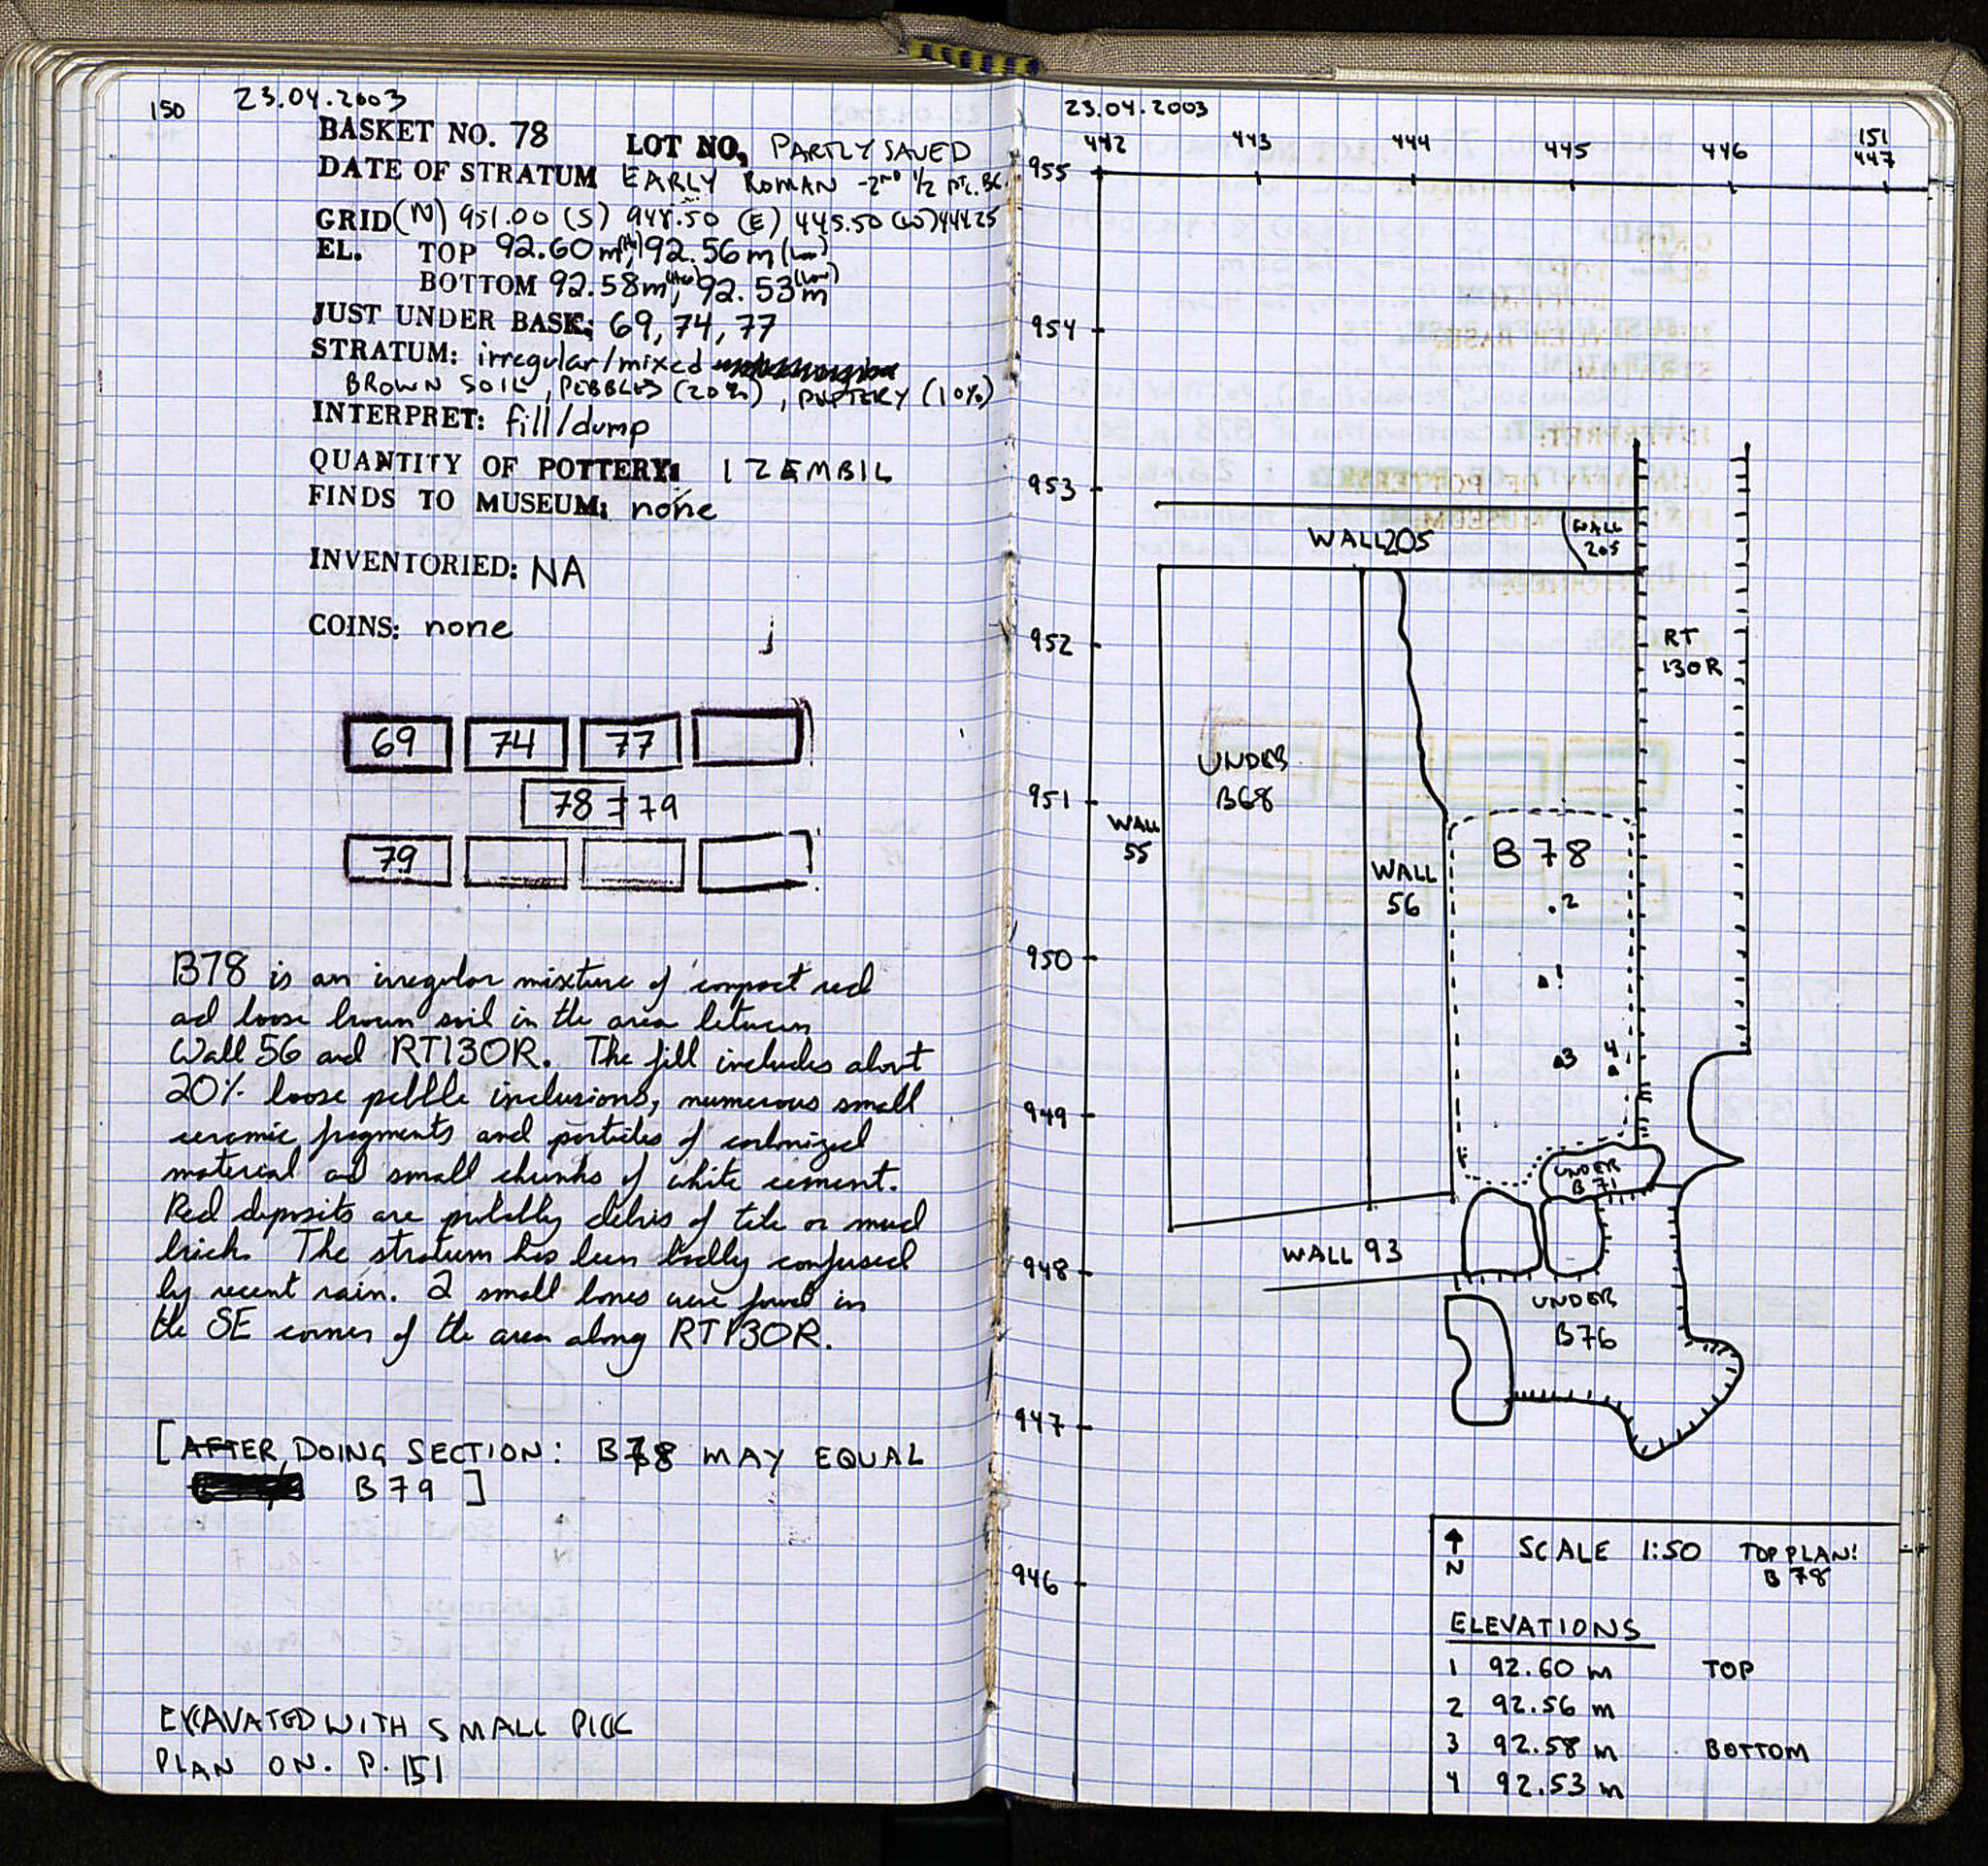 150 23.04.2003
BASKET NO. 78 LOT NO, PARTLY SAVED
DATE OF STRATUM EARLY ROMAN -2ND 1/2 BC.
GRID (N) 951.00 (S) 948.50 (E) 445.50 (W) 444.25
EL. TOP 92.60m, 92.56m (Low)
BOTTOM 92.58m, 92.53m (Low)
JUST UNDER BASK; 69, 74, 77
STRATUM: irregular/mixed
BROWN SOIL, PEBBLES (20%), POTTERY (10%)
INTERPRET: fill/dump
QUANTITY OF POTTERY: 1 ZEMBIL
FINDS TO MUSEUM: none
INVENTORIED: NA
COINS: none
69 74 77
78 = 79
79
B78 is an irregular mixture of compact red
ad loose brown soil in the area between
Wall 56 and RT130R. The fill includes about
20% loose pebble inclusions, numerous small
ceramic fragments and particles of carbonized
material ad small chunks of white cement.
Red deposits are probably debris of tile or mud
brick. The stratum has been badly confused
by recent rain. 2 small bones were found in
the SE corner of the area along RT130R.
[AFTER DOING SECTION: B78 MAY EQUAL
B79]
EXCAVATED WITH SMALL PICK
PLAN ON. P. 151
23.04.2003
151
442 443 444 445 446 447
955
954
953
WALL 205
WALL
205
952
RT
130R
UNDER
B68
951
WALL
55
B 78
WALL
56
.2
950
1
3 4
949
UNDER
B 71
WALL 93
948
UNDER
B76
947
946
N
SCALE 1:50 TOP PLAN:
B 78
ELEVATIONS
1 92.60 m TOP
2 92.56 m
3 92.58 m BOTTOM
4 92.53 m